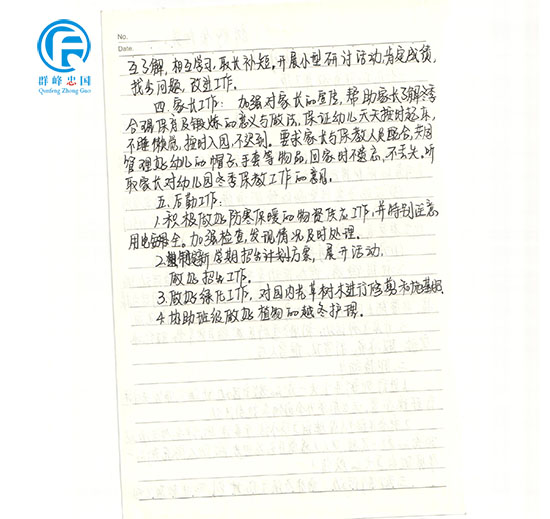 群峰忠国
Qunfeng Zhong Guo
No.
Date.
互了解，相互学习，取长补短。开展小型研讨活动，肯定成绩，
找出问题，改进工作。
四、家长工作：加强对家长的宣传，帮助家长了解冬季
合理保育及锻炼的意义与做法，保证幼儿天天按时起床，
不睡懒觉，按时入园，不迟到。要求家长与保教人员配合，共同
管理好幼儿的帽子、手套等物品，回家时不遗忘，不丢失。听
取家长对幼儿园冬季保教工作的意见。
五、后勤工作：
1.积极做好防寒保暖的物资供应工作，并特别注意
用电安全。加强检查，发现情况及时处理。
2.制定新学期招生计划方案，展开活动。
做好招生工作。
3.做好绿化工作，对园内花草树木进行修剪和施基肥。
4.协助班级做好植物的越冬护理。